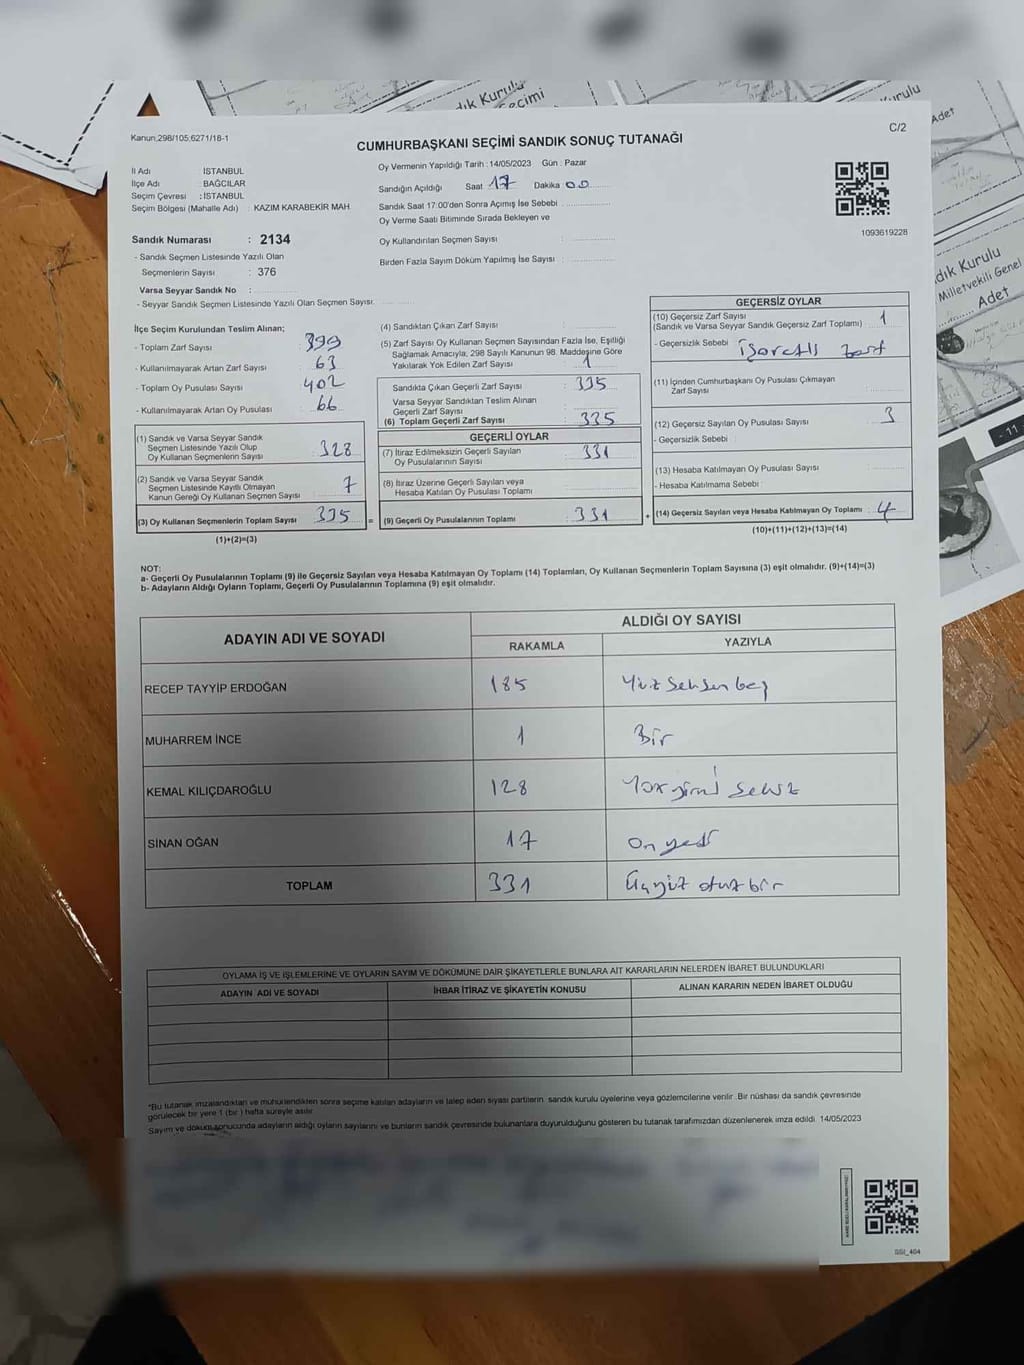 dık Kurulu
eçimi
urulu
Adet
Kanun 298/105;6271/18-1
C/2
CUMHURBAŞKANI SEÇİMİ SANDIK SONUÇ TUTANAĞI
İl Adı İSTANBUL
İlçe Adı BAĞCILAR
Seçim Çevresi : İSTANBUL
Seçim Bölgesi (Mahalle Adı) : KAZIM KARABEKİR MAH.
Oy Vermenin Yapıldığı Tarih : 14/05/2023 Gün : Pazar
Sandığın Açıldığı Saat 17 Dakika 00
Sandık Saat 17:00'den Sonra Açımış İse Sebebi :
Oy Verme Saati Bitiminde Sırada Bekleyen ve
Oy Kullandırılan Seçmen Sayısı :
Birden Fazla Sayım Döküm Yapılmış İse Sayısı :
1093619228
Sandık Numarası : 2134
- Sandık Seçmen Listesinde Yazılı Olan
Seçmenlerin Sayısı : 376
Varsa Seyyar Sandık No :
- Seyyar Sandık Seçmen Listesinde Yazılı Olan Seçmen Sayısı:
İlçe Seçim Kurulundan Teslim Alınan;
- Toplam Zarf Sayısı 399
- Kullanılmayarak Artan Zarf Sayısı 63
- Toplam Oy Pusulası Sayısı 402
- Kullanılmayarak Artan Oy Pusulası 66
(1) Sandık ve Varsa Seyyar Sandık
Seçmen Listesinde Yazılı Olup
Oy Kullanan Seçmenlerin Sayısı : 328
(2) Sandık ve Varsa Seyyar Sandık
Seçmen Listesinde Kayıtlı Olmayan
Kanun Gereği Oy Kullanan Seçmen Sayısı : 7
(3) Oy Kullanan Seçmenlerin Toplam Sayısı : 335
(1)+(2)=(3)
=
(4) Sandıktan Çıkan Zarf Sayısı :
(5) Zarf Sayısı Oy Kullanan Seçmen Sayısından Fazla İse, Eşitliği
Sağlamak Amacıyla, 298 Sayılı Kanunun 98. Maddesine Göre
Yakılarak Yok Edilen Zarf Sayısı : 1
Sandıkta Çıkan Geçerli Zarf Sayısı : 335
Varsa Seyyar Sandıktan Teslim Alınan
Geçerli Zarf Sayısı :
(6) Toplam Geçerli Zarf Sayısı : 335
GEÇERLİ OYLAR
(7) İtiraz Edilmeksizin Geçerli Sayılan
Oy Pusulalarının Sayısı : 331
(8) İtiraz Üzerine Geçerli Sayılan veya
Hesaba Katılan Oy Pusulası Toplamı :
(9) Geçerli Oy Pusulalarının Toplamı : 331
+
GEÇERSİZ OYLAR
(10) Geçersiz Zarf Sayısı
(Sandık ve Varsa Seyyar Sandık Geçersiz Zarf Toplamı) : 1
- Geçersizlik Sebebi : İşaretli zarf
(11) İçinden Cumhurbaşkanı Oy Pusulası Çıkmayan
Zarf Sayısı :
(12) Geçersiz Sayılan Oy Pusulası Sayısı : 3
- Geçersizlik Sebebi :
(13) Hesaba Katılmayan Oy Pusulası Sayısı :
- Hesaba Katılmama Sebebi :
(14) Geçersiz Sayılan veya Hesaba Katılmayan Oy Toplamı : 4
(10)+(11)+(12)+(13)=(14)
NOT:
a- Geçerli Oy Pusulalarının Toplamı (9) ile Geçersiz Sayılan veya Hesaba Katılmayan Oy Toplamı (14) Toplamları, Oy Kullanan Seçmenlerin Toplam Sayısına (3) eşit olmalıdır. (9)+(14)=(3)
b- Adayların Aldığı Oyların Toplamı, Geçerli Oy Pusulalarının Toplamına (9) eşit olmalıdır.
ADAYIN ADI VE SOYADI ALDIĞI OY SAYISI
RAKAMLA YAZIYLA
RECEP TAYYİP ERDOĞAN 185 Yüz seksen beş
MUHARREM İNCE 1 Bir
KEMAL KILIÇDAROĞLU 128 Yüzyirmi sekiz
SİNAN OĞAN 17 On yedi
TOPLAM 331 Üçyüz otuz bir
OYLAMA İŞ VE İŞLEMLERİNE VE OYLARIN SAYIM VE DÖKÜMÜNE DAİR ŞİKAYETLERLE BUNLARA AİT KARARLARIN NELERDEN İBARET BULUNDUKLARI
ADAYIN ADI VE SOYADI İHBAR İTİRAZ VE ŞİKAYETİN KONUSU ALINAN KARARIN NEDEN İBARET OLDUĞU
*Bu tutanak imzalandıktan ve mühürlendikten sonra seçime katılan adayların ve talep eden siyasi partilerin sandık kurulu üyelerine veya gözlemcilerine verilir. Bir nüshası da sandık çevresinde
görülecek bir yere 1 (bir) hafta süreyle asılır.
Sayım ve döküm sonucunda adayların aldığı oyların sayılarını ve bunların sandık çevresinde bulunanlara duyurulduğunu gösteren bu tutanak tarafımızdan düzenlenerek imza edildi. 14/05/2023
dık Kurulu
Milletvekili Genel
Adet
- 11